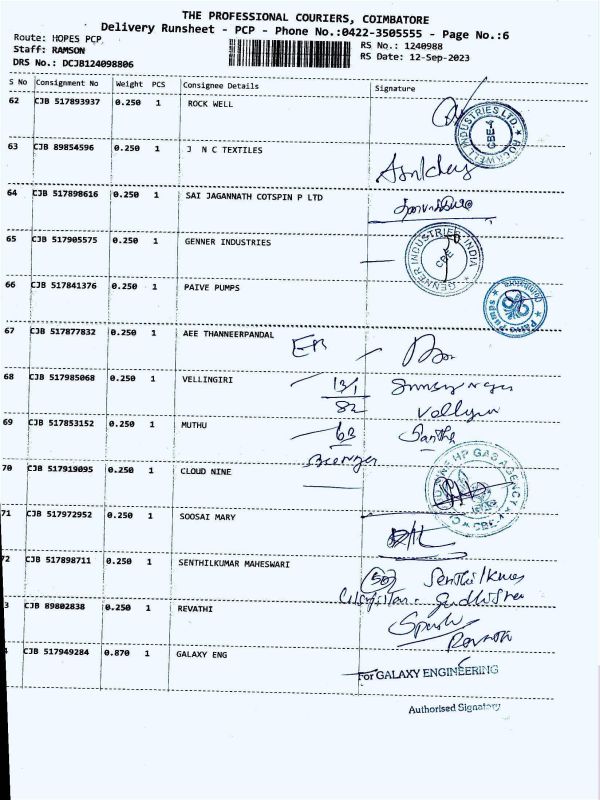 THE PROFESSIONAL COURIERS, COIMBATORE
Delivery Runsheet - PCP - Phone No.:0422-3505555 - Page No.:6
Route: HOPES PCP
Staff: RAMSON
DRS No.: DCJB124098806
RS No.: 1240988
RS Date: 12-Sep-2023
S No Consignment No Weight PCS Consignee Details Signature
62 CJB 517893937 0.250 1 ROCK WELL
ROCKWELL INDUSTRIES LTD. CBE-4
63 CJB 89854596 0.250 1 J N C TEXTILES
64 CJB 517898616 0.250 1 SAI JAGANNATH COTSPIN P LTD
65 CJB 517905575 0.250 1 GENNER INDUSTRIES
GENNER INDUSTRIES INDIA CBE
66 CJB 517841376 0.250 1 PAIVE PUMPS
67 CJB 517877832 0.250 1 AEE THANNEERPANDAL
EB
68 CJB 517985068 0.250 1 VELLINGIRI
13/1
82
69 CJB 517853152 0.250 1 MUTHU
63
70 CJB 517919095 0.250 1 CLOUD NINE
HP GAS AGENCY CBE-4
71 CJB 517972952 0.250 1 SOOSAI MARY
2 CJB 517898711 0.250 1 SENTHILKUMAR MAHESWARI
3 CJB 89802838 0.250 1 REVATHI
CJB 517949284 0.870 1 GALAXY ENG
For GALAXY ENGINEERING
Authorised Signatory